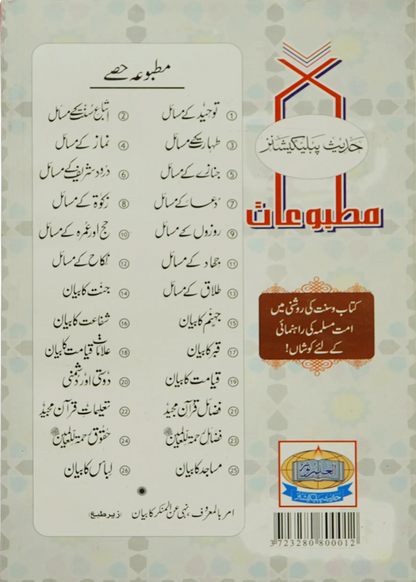 مطبوعہ حصے
① توحید کے مسائل ② اتباع سنت کے مسائل
③ طہارت کے مسائل ④ نماز کے مسائل
⑤ جنازے کے مسائل ⑥ درود شریف کے مسائل
⑦ دعا کے مسائل ⑧ زکوٰۃ کے مسائل
⑨ روزوں کے مسائل ⑩ حج اور عمرہ کے مسائل
⑪ جہاد کے مسائل ⑫ نکاح کے مسائل
⑬ طلاق کے مسائل ⑭ جنت کا بیان
⑮ جہنم کا بیان ⑯ شفاعت کا بیان
⑰ قبر کا بیان ⑱ علامات قیامت کا بیان
⑲ قیامت کا بیان ⑳ دوستی اور دشمنی
㉑ فضائل قرآن مجید ㉒ تعلیمات قرآن مجید
㉓ فضائل رحمۃ للعالمین ㉔ حقوق رحمۃ للعالمین
㉕ مساجد کا بیان ㉖ لباس کا بیان
امر بالمعروف، نہی عن المنکر کا بیان (زیر طبع)
حدیث پبلیکیشنز
مطبوعات
کتاب و سنت کی روشنی میں
امت مسلمہ کی راہنمائی
کے لئے کوشاں!
حدیث پبلیکیشنز
3 723280 800012